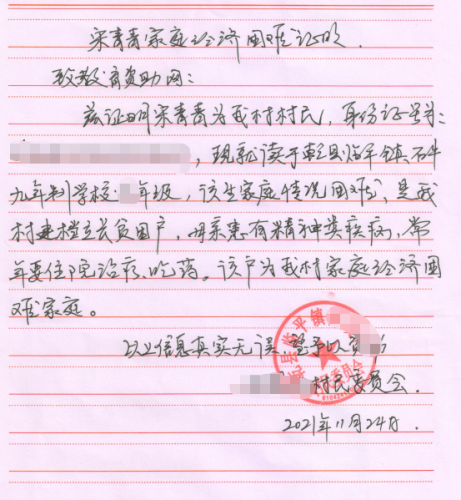 宋青青家庭经济困难证明.
致教育资助网:
兹证明宋青青为我村村民,身份证号为:
,现就读于乾县临平镇石牛
九年制学校 年级,该生家庭情况困难,是我
村建档立贫困户,母亲患有精神类疾病,常
年要住院治疗、吃药。该户为我村家庭经济困
难家庭。
以上信息真实无误,望予以资助
乾县临平镇
村民委员会.
2021年11月24日.